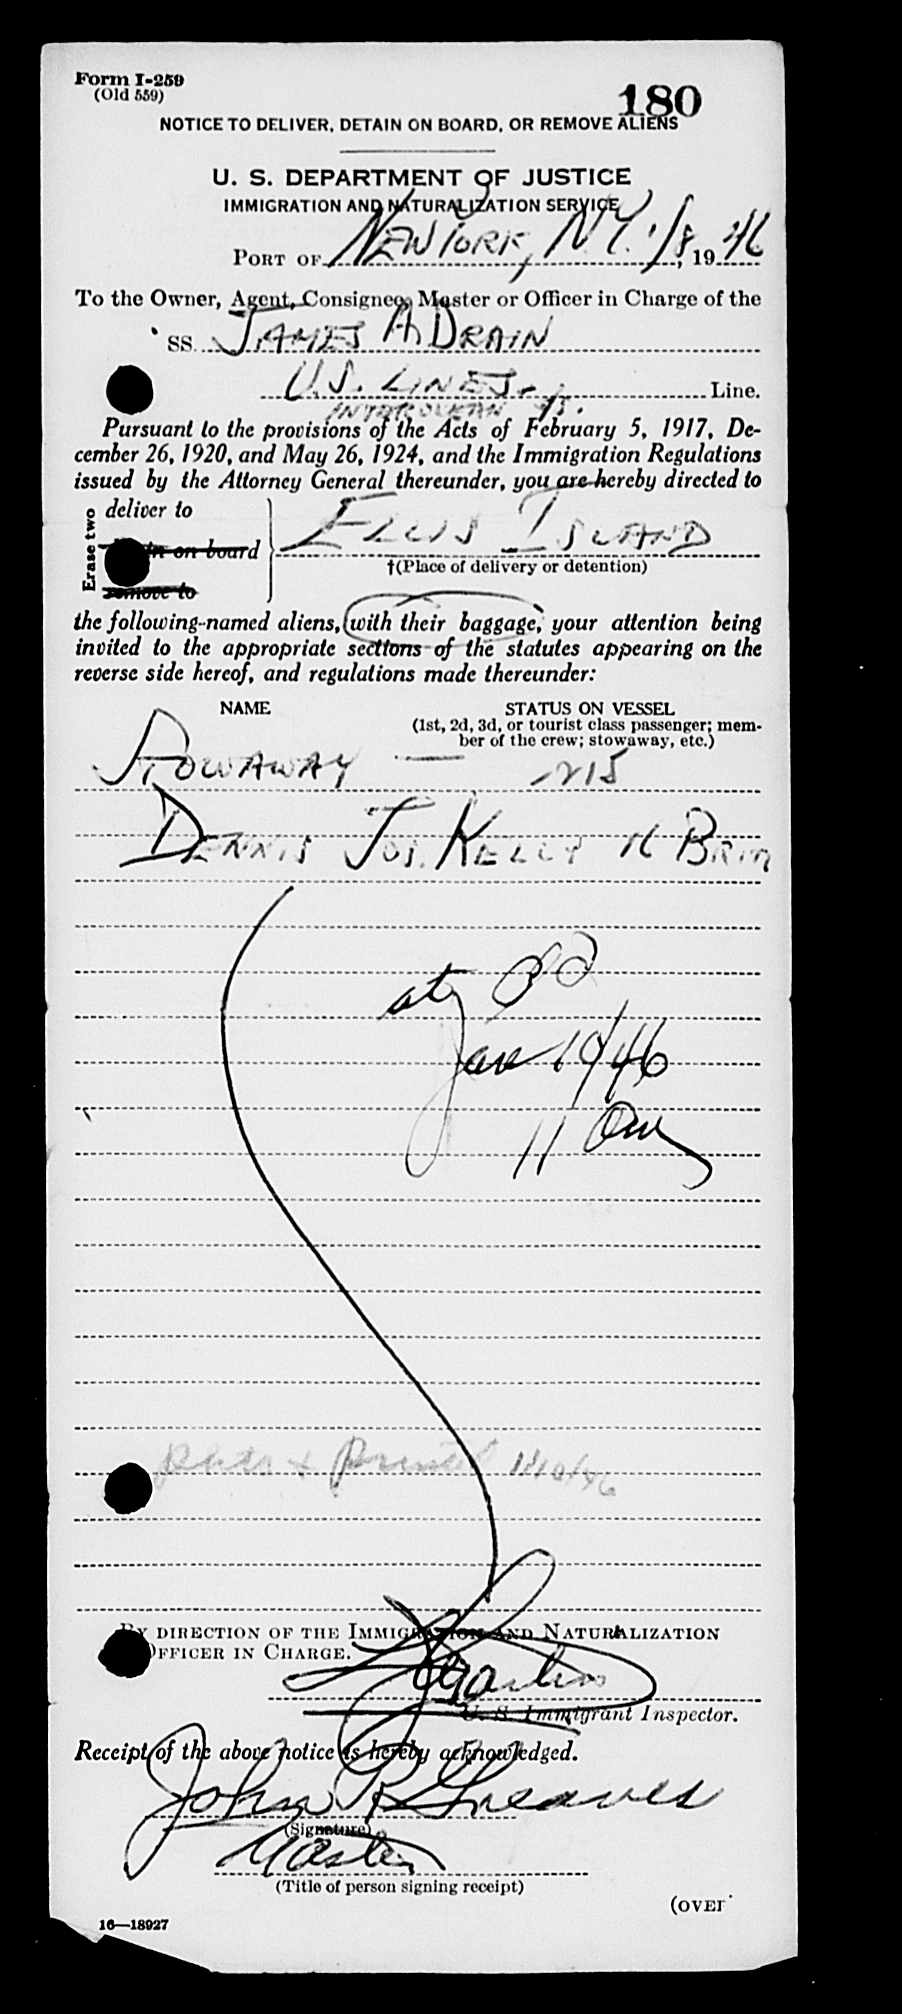 Form I-259
(Old 559)
180
NOTICE TO DELIVER, DETAIN ON BOARD, OR REMOVE ALIENS
U. S. DEPARTMENT OF JUSTICE
IMMIGRATION AND NATURALIZATION SERVICE
PORT OF NEW YORK, N.Y. 1/8, 1946
To the Owner, Agent, Consignee, Master or Officer in Charge of the
SS. JAMES A DRAIN
U.S. LINES. Line.
Pursuant to the provisions of the Acts of February 5, 1917, De-
cember 26, 1920, and May 26, 1924, and the Immigration Regulations
issued by the Attorney General thereunder, you are hereby directed to
Erase two
deliver to
on board
remove to
ELLIS ISLAND
†(Place of delivery or detention)
the following-named aliens, with their baggage, your attention being
invited to the appropriate sections of the statutes appearing on the
reverse side hereof, and regulations made thereunder:
NAME STATUS ON VESSEL
(1st, 2d, 3d, or tourist class passenger; mem-
ber of the crew; stowaway, etc.)
STOWAWAY —
DENNIS JOS. KELLY
Jan 10/46
11
BY DIRECTION OF THE IMMIGRATION AND NATURALIZATION
OFFICER IN CHARGE.
U. S. Immigrant Inspector.
Receipt of the above notice is hereby acknowledged.
John R Greaves
(Signature)
Master
(Title of person signing receipt)
(OVER
16—18927